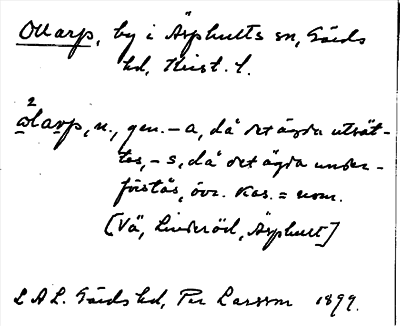 Ollarp, by i Äsphults sn, Gärds
hd, Krist. l.
2
ålarp, n., gen. -a, då det ägda utsät-
tes, -s, då det ägda under-
förstås, övr. kas. = nom.
[Vä, Linderöd, Äsphult]
LAL. Gärds hd, Per Larsson 1899.